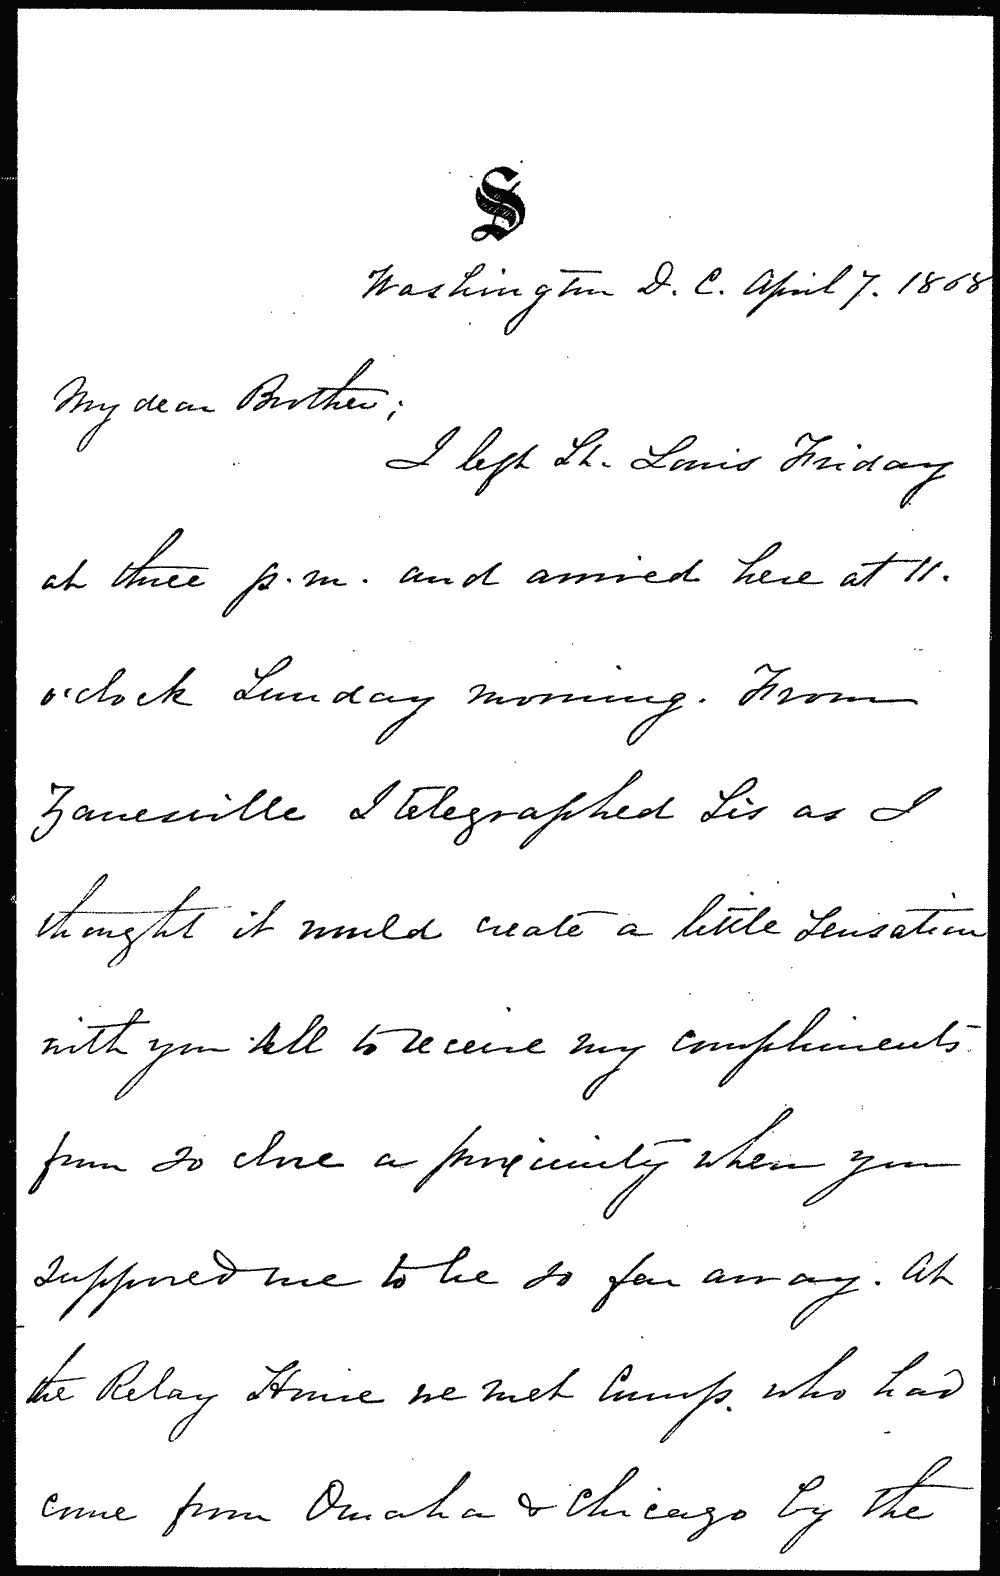 S
Washington D. C. April 7. 1868
My dear Brother;
I left St. Louis Friday
at three p.m. and arrived here at 11.
o'clock Sunday morning. From
Zanesville I telegraphed Sis as I
thought it would create a little sensation
with you all to receive my compliments
from so close a proximity when you
supposed me to be so far away. At
the Relay House we met Cump. who had
come from Omaha & Chicago by the